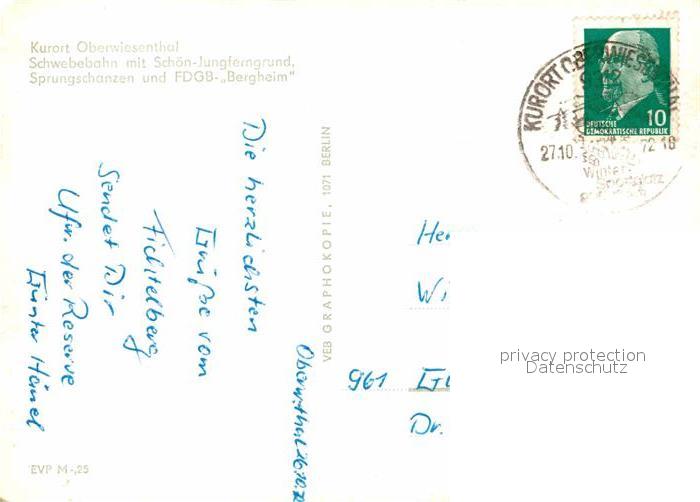 Kurort Oberwiesenthal
Schwebebahn mit Schön-Jungferngrund,
Sprungschanzen und FDGB-„Bergheim"
KURORT OBERWIESENTHAL
27.10. 72-18
Winter-
Sportplatz
10
DEUTSCHE
DEMOKRATISCHE REPUBLIK
Die herzlichsten
Grüße vom
Fichtelberg,
Sendet Dir
Ufw. der Reserve
Günter Hänel
Oberw.thal 26.10.72
VEB GRAPHOKOPIE, 1071 BERLIN
He
Wi
961 Gl
Dr.
privacy protection
Datenschutz
EVP M -,25